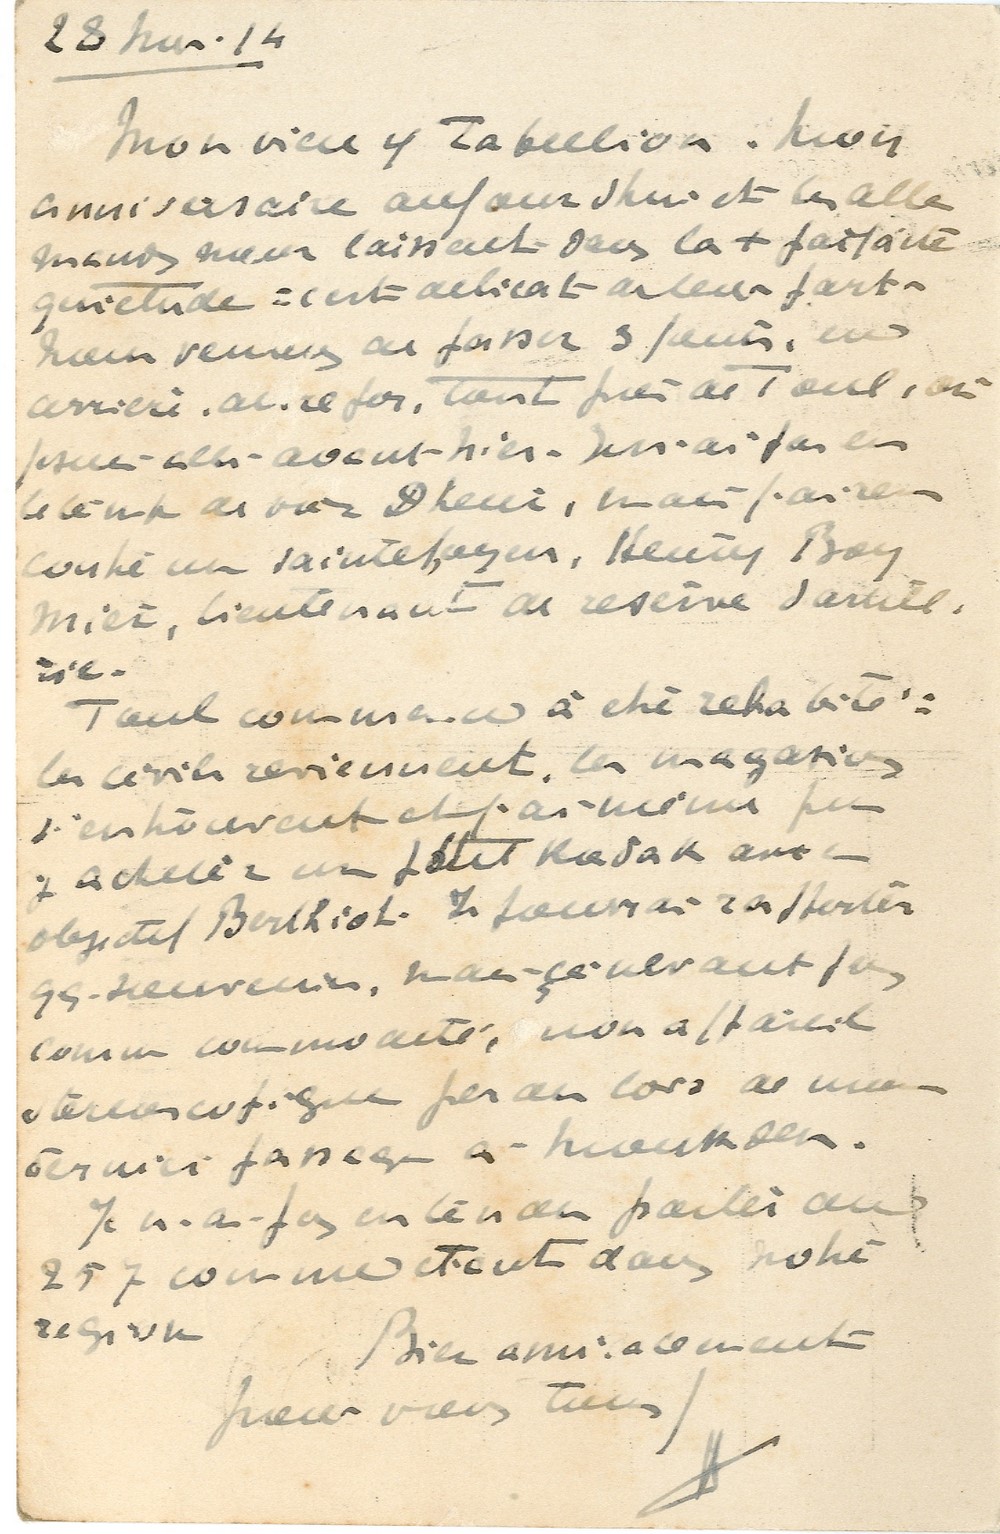 28 Nov. 14
Mon vieux Tabellion. Mon
anniversaire aujourdhui et les alle
mands nous laissent dans la + parfaite
quietude = c'est delicat de leur part.
Nous venons de passer 3 jours, en
arriere, de repos, tout près de Toul, où
avant-hier. Je n'ai pas eu
de voir Dhení, mais j'ai ren
contré un saintefoyen, Henry Boy
mier, lieutenant de reserve d'artil.
rie.
Toul commence à etre rehabité :
les civils reviennent, les magasins
s'entrouvent et j'ai même pu
y acheter un petit Kodak avec
objectif Berthiot. Je pourrai rapporter
qq. souvenirs, mais ça ne vaut pas
comme commodité, mon appareil
stereoscopique perdu lors de mon
dernier passage à Mouksen.
Je n'ai pas entendu parler du
257 comme etant dans notre
region
Bien amicalement
pour vous tous